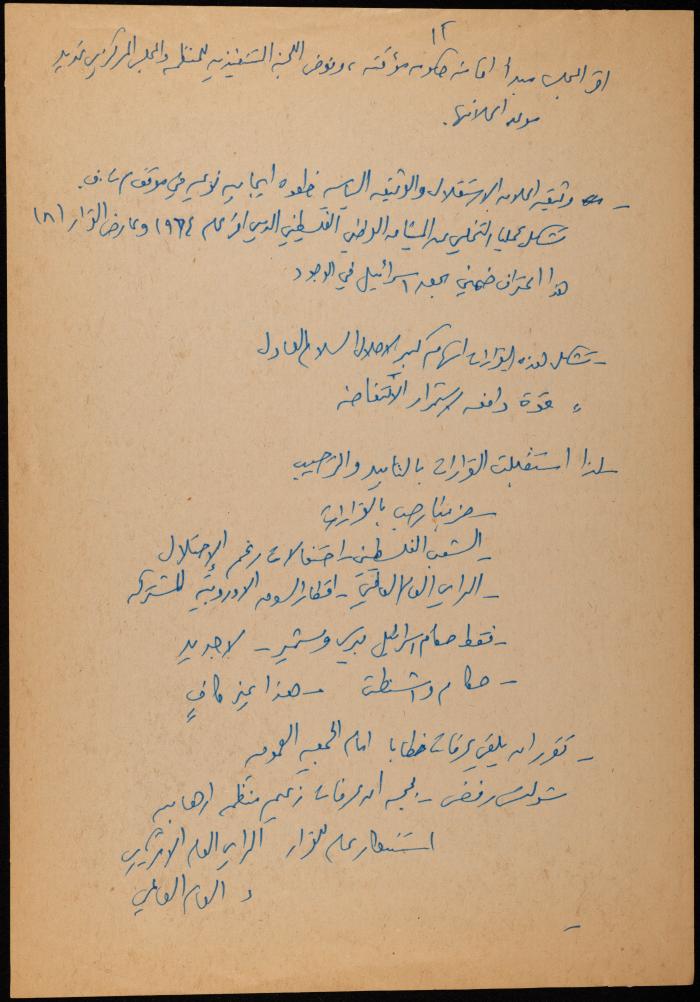 ١٢
اقر المجلس مبدأ اقامة حكومه مؤقته، وفوض اللجنة التنفيذيه للمنظمه والمجلس المركزي تحديد
موعد اعلانها.
- وثيقه اعلان الاستقلال والوثيقه السياسيه خطوه ايجابيه نوعيه في موقف م.ت.ف.
تشكل عمليا التخلي عن الميثاق الوطني الفلسطيني الذي اقر عام ١٩٦٤ وعارض القرار ١٨١
هذا اعتراف ضمني بحق اسرائيل في الوجود
- تشكل هذه القرارات اسهام كبير لاحلال السلام العادل
قوة دافعه لاستمرار الانتفاضه
- لذا استقبلت القرارات بالتاييد والترحيب
- حزبنا رحب بالقرارات
- الشعب الفلسطيني - احتفالات رغم الإحتلال
- الراي العام العالمي - اقطار السوق الاوروبية المشتركه
- فقط حكام اسرائيل بيرس وشمير - لا جديد
- حكام واشنطن - هذا غير كافٍ
- تقرر ان يلقي عرفات خطابا امام الجمعيه العموميه
شولتس رفض - بحجه ان عرفات زعيم منظمه ارهابيه
استنكار عام للقرار الراي العام الامريكي
العام العالمي
-